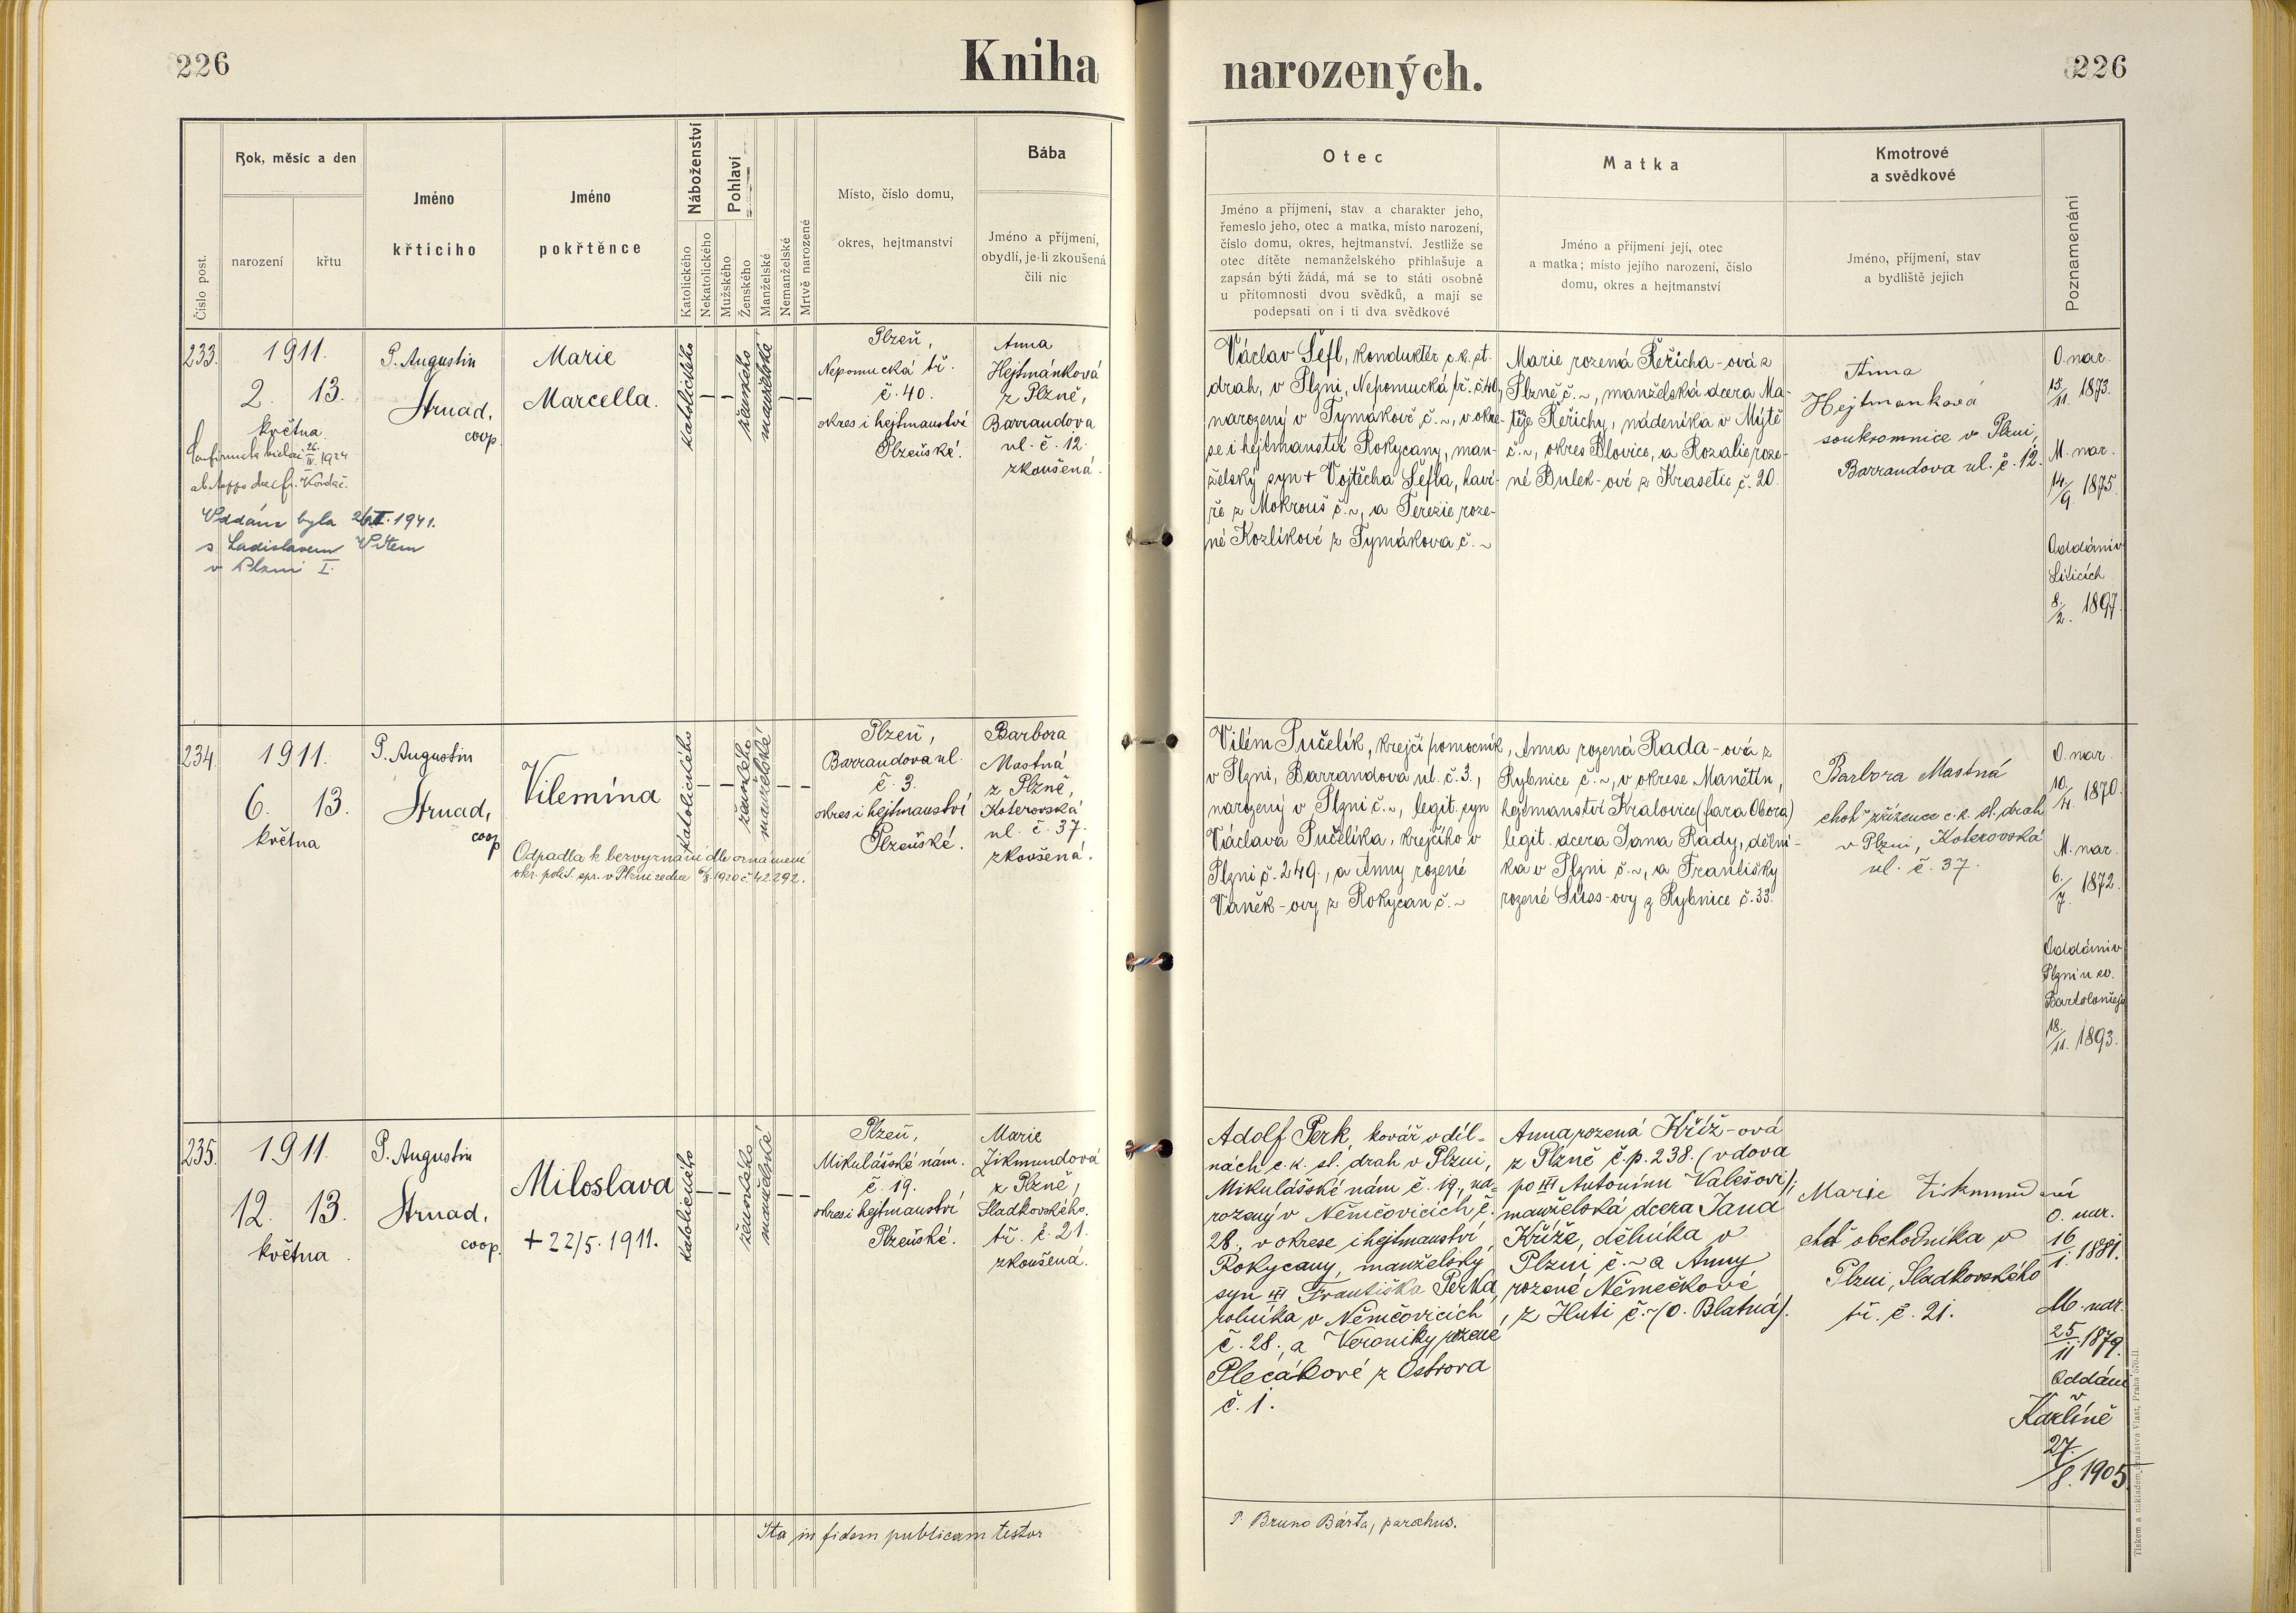 226
Kniha
narozených.
226
Číslo post.
Rok, měsíc a den
narození
křtu
Jméno
křticího
Jméno
pokřtěnce
Náboženství
Katolického
Nekatolického
Pohlaví
Mužského
Ženského
Manželské
Nemanželské
Mrtvě narozené
Místo, číslo domu,
okres, hejtmanství
Bába
Jméno a příjmení,
obydlí, je-li zkoušená
čili nic
Otec
Jméno a příjmení, stav a charakter jeho,
řemeslo jeho, otec a matka, místo narození,
číslo domu, okres, hejtmanství. Jestliže se
otec dítěte nemanželského přihlašuje a
zapsán býti žádá, má se to státi osobně
u přítomnosti dvou svědků, a mají se
podepsati on i ti dva svědkové
Matka
Jméno a příjmení její, otec
a matka; místo jejího narození, číslo
domu, okres a hejtmanství
Kmotrové
a svědkové
Jméno, příjmení, stav
a bydliště jejich
Poznamenání
233.
1911.
2. 13.
května
26. IV. 1924
Oddána byla 26.II.1941.
s Ladislavem Vítem
v Plzni I.
P. Augustin
Strnad,
coop.
Marie
Marcella.
katolického
— —
ženského
manželské
— —
Plzeň,
Nepomucká tř.
č. 40.
okres i hejtmanství
Plzeňské.
Anna
Hejtmánková
z Plzně,
Barrandova
ul. č. 12.
zkoušená.
Václav Šefl, konduktér c.k. st.
drah, v Plzni, Nepomucká tř. č. 40,
narozený v Tymákově č. ~, v okre-
se i hejtmanství Rokycany, man-
želský syn + Vojtěcha Šefla, haví-
ře z Mokrouš č. ~, a Terezie roze-
né Kozlíkové z Tymákova č. ~
Marie rozená Řeřicha-ová z
Plzně č. ~, manželská dcera Ma-
těje Řeřichy, nádeníka v Mýtě
č. ~, okres Blovice, a Rozalie roze-
né Bulek-ové z Krasetic č. 20.
Anna
Hejtmanková
soukromnice v Plzni,
Barrandova ul. č. 12.
O. nar.
15/11. 1873.
M. nar.
14./9. 1875.
Oddáni v
Liticích
8./2. 1897.
234.
1911.
6. 13.
května
P. Augustin
Strnad,
coop
Vilemína
Odpadla k bezvyznání dle oznámení
okr. polit. spr. v Plzni ze dne 6/8. 1920 č 42.292.
katolického
— —
ženského
manželské
— —
Plzeň,
Barrandova ul.
č. 3.
okres i hejtmanství
Plzeňské.
Barbora
Mastná
z Plzně,
Koterovská
ul. č. 37.
zkoušená.
Vilém Pučelík, krejčí pomocník,
v Plzni, Barrandova ul. č. 3.,
narozený v Plzni č. ~, legit. syn
Václava Pučelíka, krejčího v
Plzni č. 249., a Anny rozené
Vaněk-ovy z Rokycan č. ~
Anna rozená Rada-ová z
Rybnice č. ~, v okrese Manětín,
hejtmanství Kralovice (fara Obora)
legit. dcera Jana Rády, dělní-
ka v Plzni č. ~, a Františky
rozené Süss-ovy z Rybnice č. 33.
Barbora Mastná
choť zřízence c.k. st. drah
v Plzni, Koterovská
ul. č. 37.
O. nar.
10./4. 1870.
M. nar.
6./7. 1872.
Oddáni v
Plzni u sv.
Bartoloměje
18./11. 1893.
235.
1911.
12. 13.
května.
P. Augustin
Strnad.
coop.
Miloslava
+ 22/5. 1911.
katolického
— —
ženského
manželské
— —
Plzeň,
Mikulášské nám.
č. 19.
okres i hejtmanství
Plzeňské.
Marie
Zikmundová
z Plzně,
Sladkovského.
tř. č. 21.
zkoušená.
Adolf Perk, kovář v díl-
nách c.k. st. drah v Plzni,
Mikulášské nám č. 19., na-
rozený v Němčovicích č.
28., v okrese i hejtmanství
Rokycany, manželský
syn Františka Perka,
rolníka v Němčovicích
č. 28., a Veroniky rozené
Plecákové z Ostrova
č. 1.
Anna rozená Kříž-ová
z Plzně č.p. 238. (vdova
po Antonínu Valešovi);
manželská dcera Jana
Kříže, dělníka v
Plzni č. ~ a Anny
rozené Němečkové
z Huti č. ~ (o. Blatná).
Marie
choť obchodníka v
Plzni, Sladkovského
tř. č. 21.
O. nar.
16/1. 1881.
M. nar.
25/11. 1879.
Oddáni
v
Karlíně
27./8. 1905
Ita in fidem publicam testor
P. Bruno Bárta, parochus.
Tiskem a nákladem družstva Vlast, Praha 570-II.